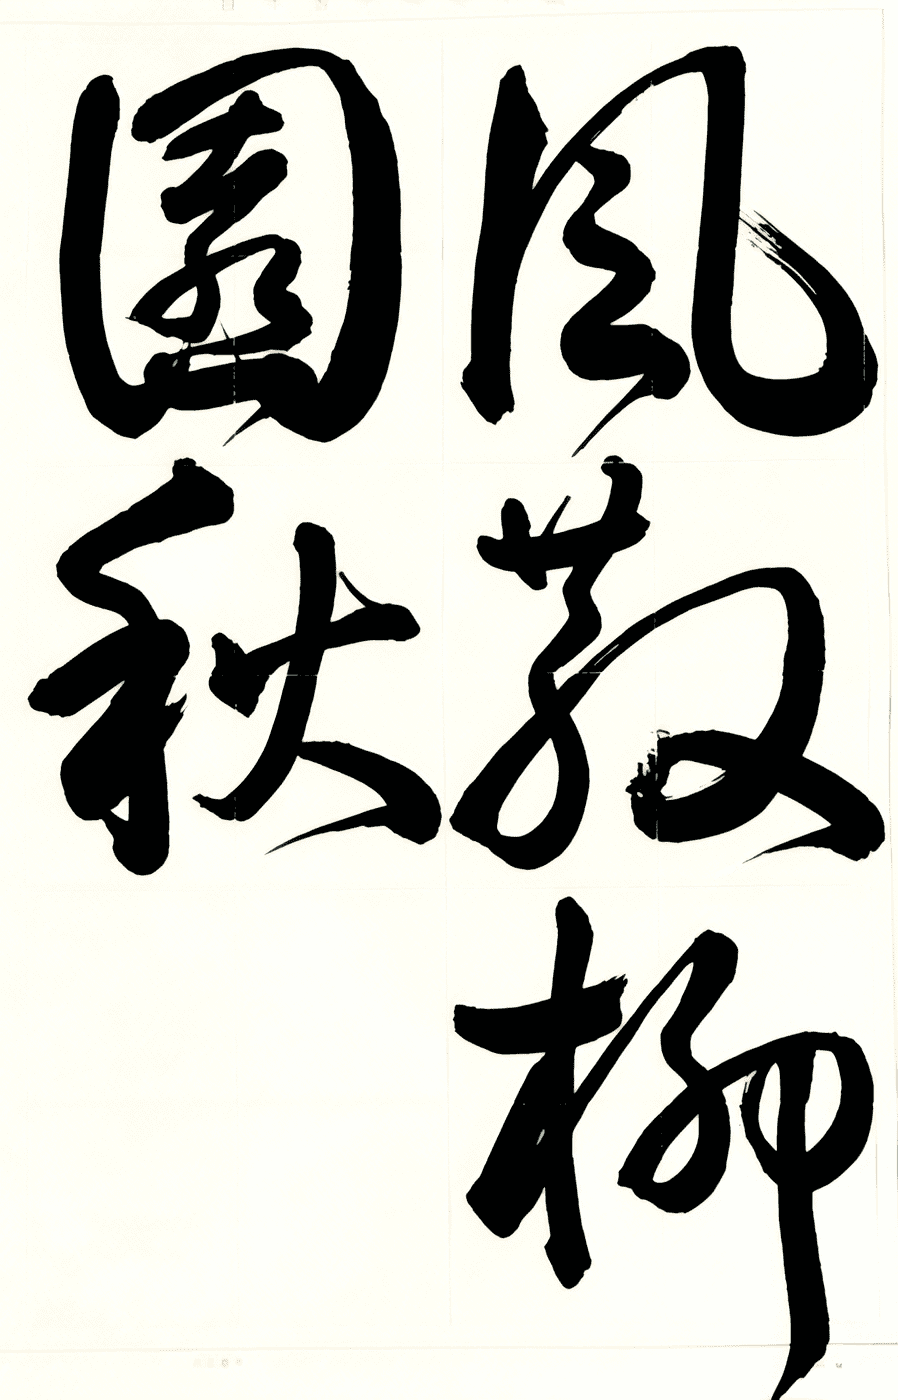 風散柳
園秋